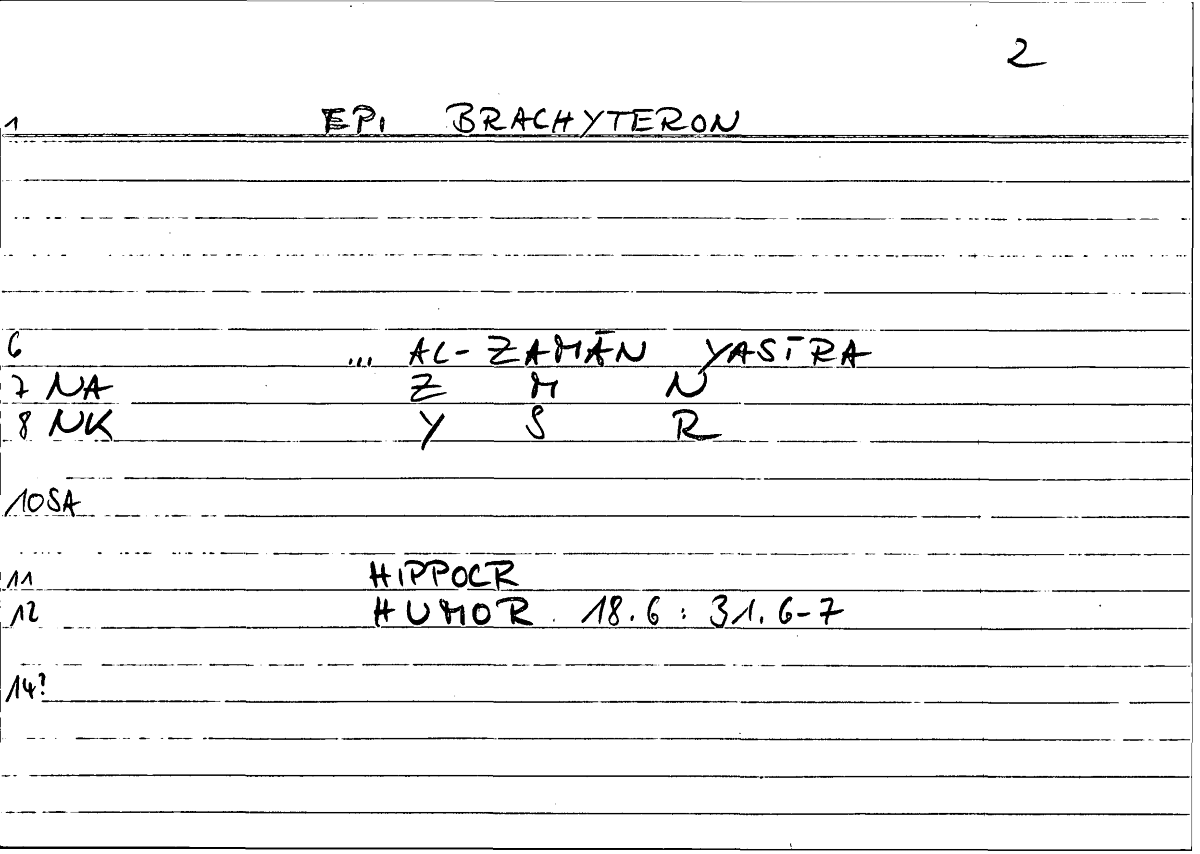 2
1 EPI BRACHYTERON
6 ... AL-ZAMĀN YASĪRA
7 NA Z M N
8 NK Y S R
10 SA
11 HIPPOCR
12 HUMOR. 18.6 : 31.6-7
14?